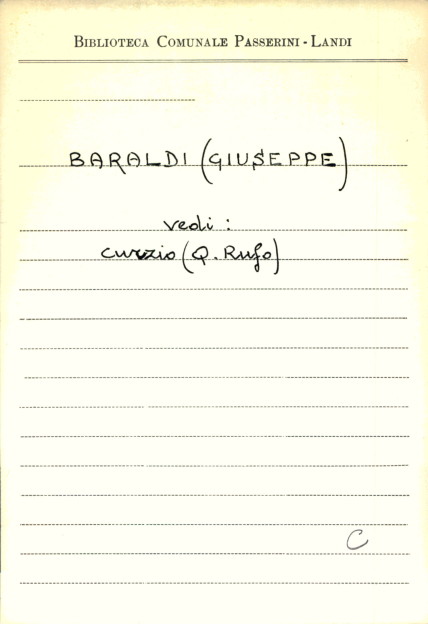 BIBLIOTECA COMUNALE PASSERINI - LANDI
BARALDI (GIUSEPPE)
vedi :
Curzio (Q. Rufo)
C